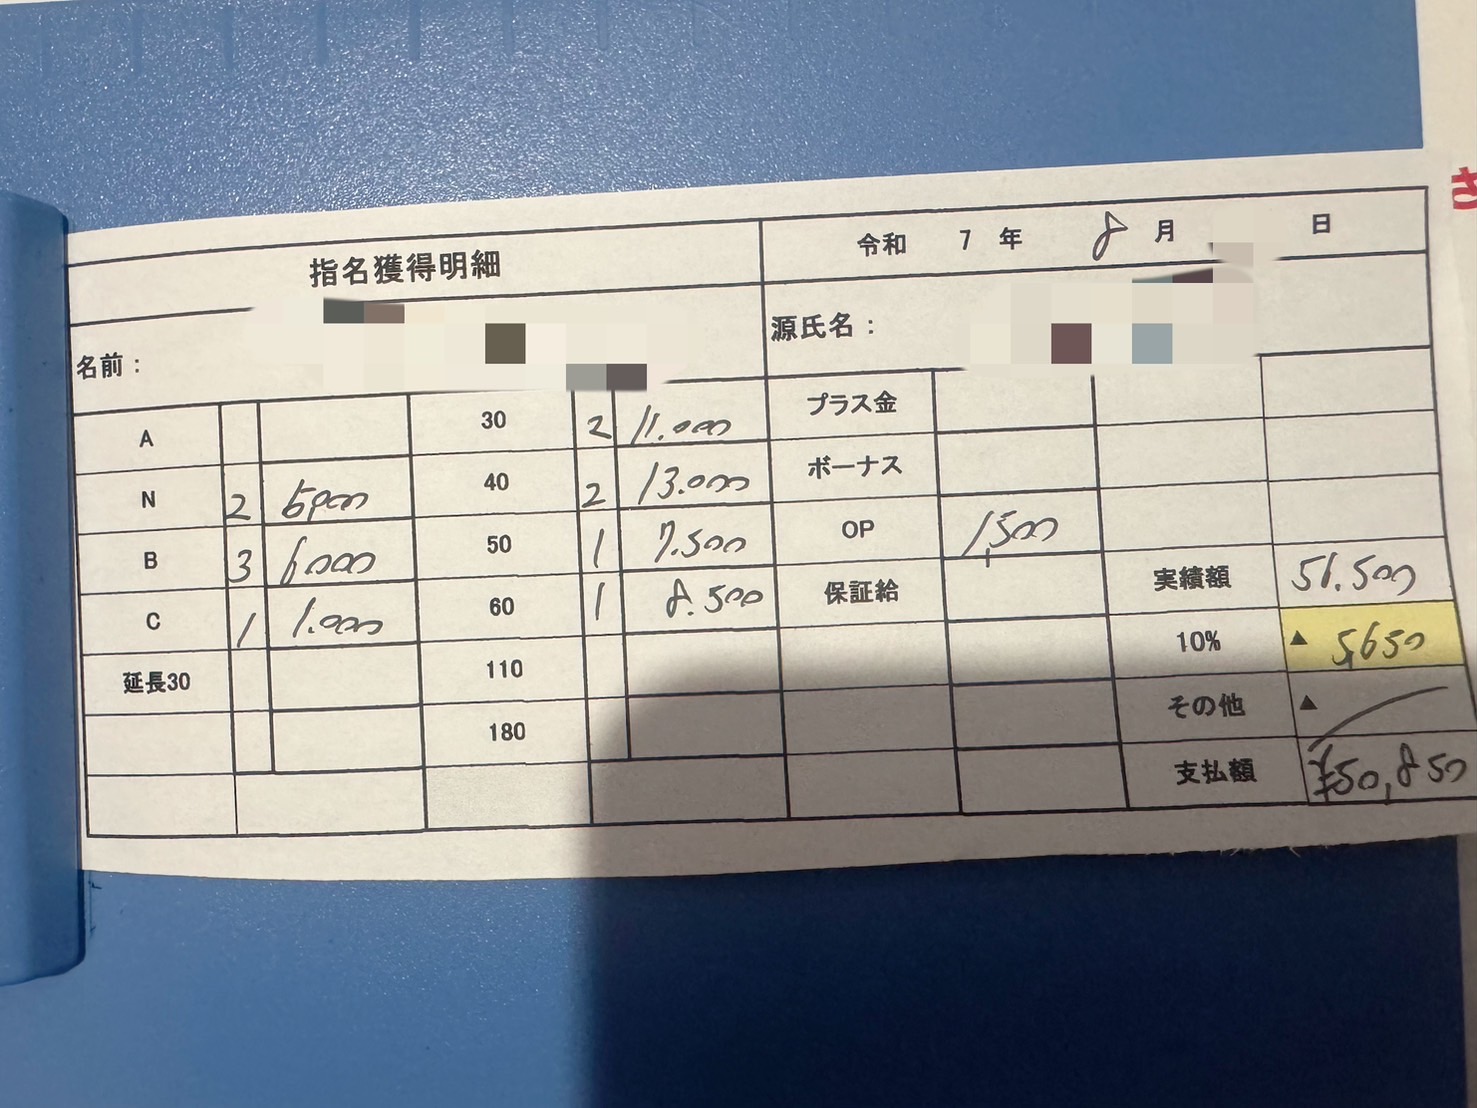 指名獲得明細 令和 7 年 8 月 日
名前： 源氏名：
A 30 2 11.000 プラス金
N 2 40 2 13.000 ボーナス
B 3 6000 50 1 7.500 OP 1,500
C 1 1.000 60 1 8.500 保証給 実績額 56.500
延長30 110 10% ▲ 5,650
180 その他 ▲
支払額 ¥50,850